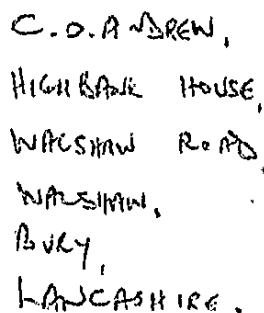 C.O.ANDREW,
HIGHBANK HOUSE,
WALSHAW ROAD,
WALSHAW,
BURY,
LANCASHIRE.